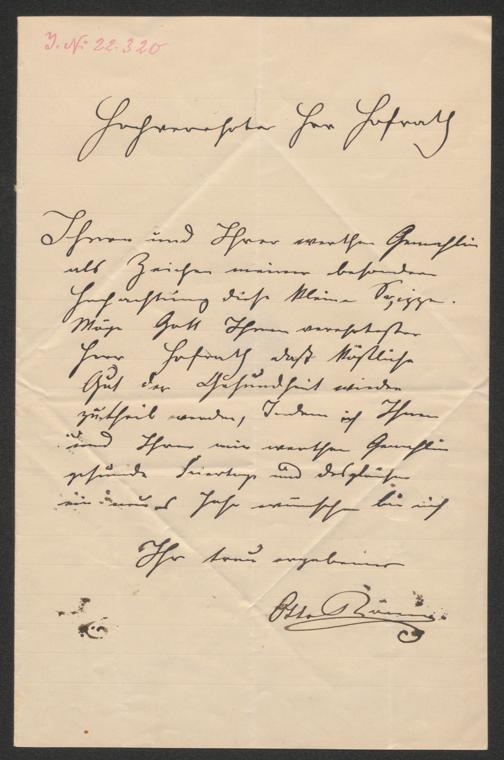 J. N. 22.320
Hochverehrter Herr Hofrath
Ihnen und Ihrer werthen Gemahlin
als Zeichen meiner besondern
Hochachtung diese kleine Skizze.
Möge Gott Ihnen verehrtester
Herr Hofrath daß köstliche
Gut der Gesundheit wieder
zutheil werden, Indem ich Ihnen
und Ihrer mir werthen Gemahlin
gesunde Feiertage und desgleichen
ein neues Jahr wünsche bin ich
Ihr treu ergebener
Otto